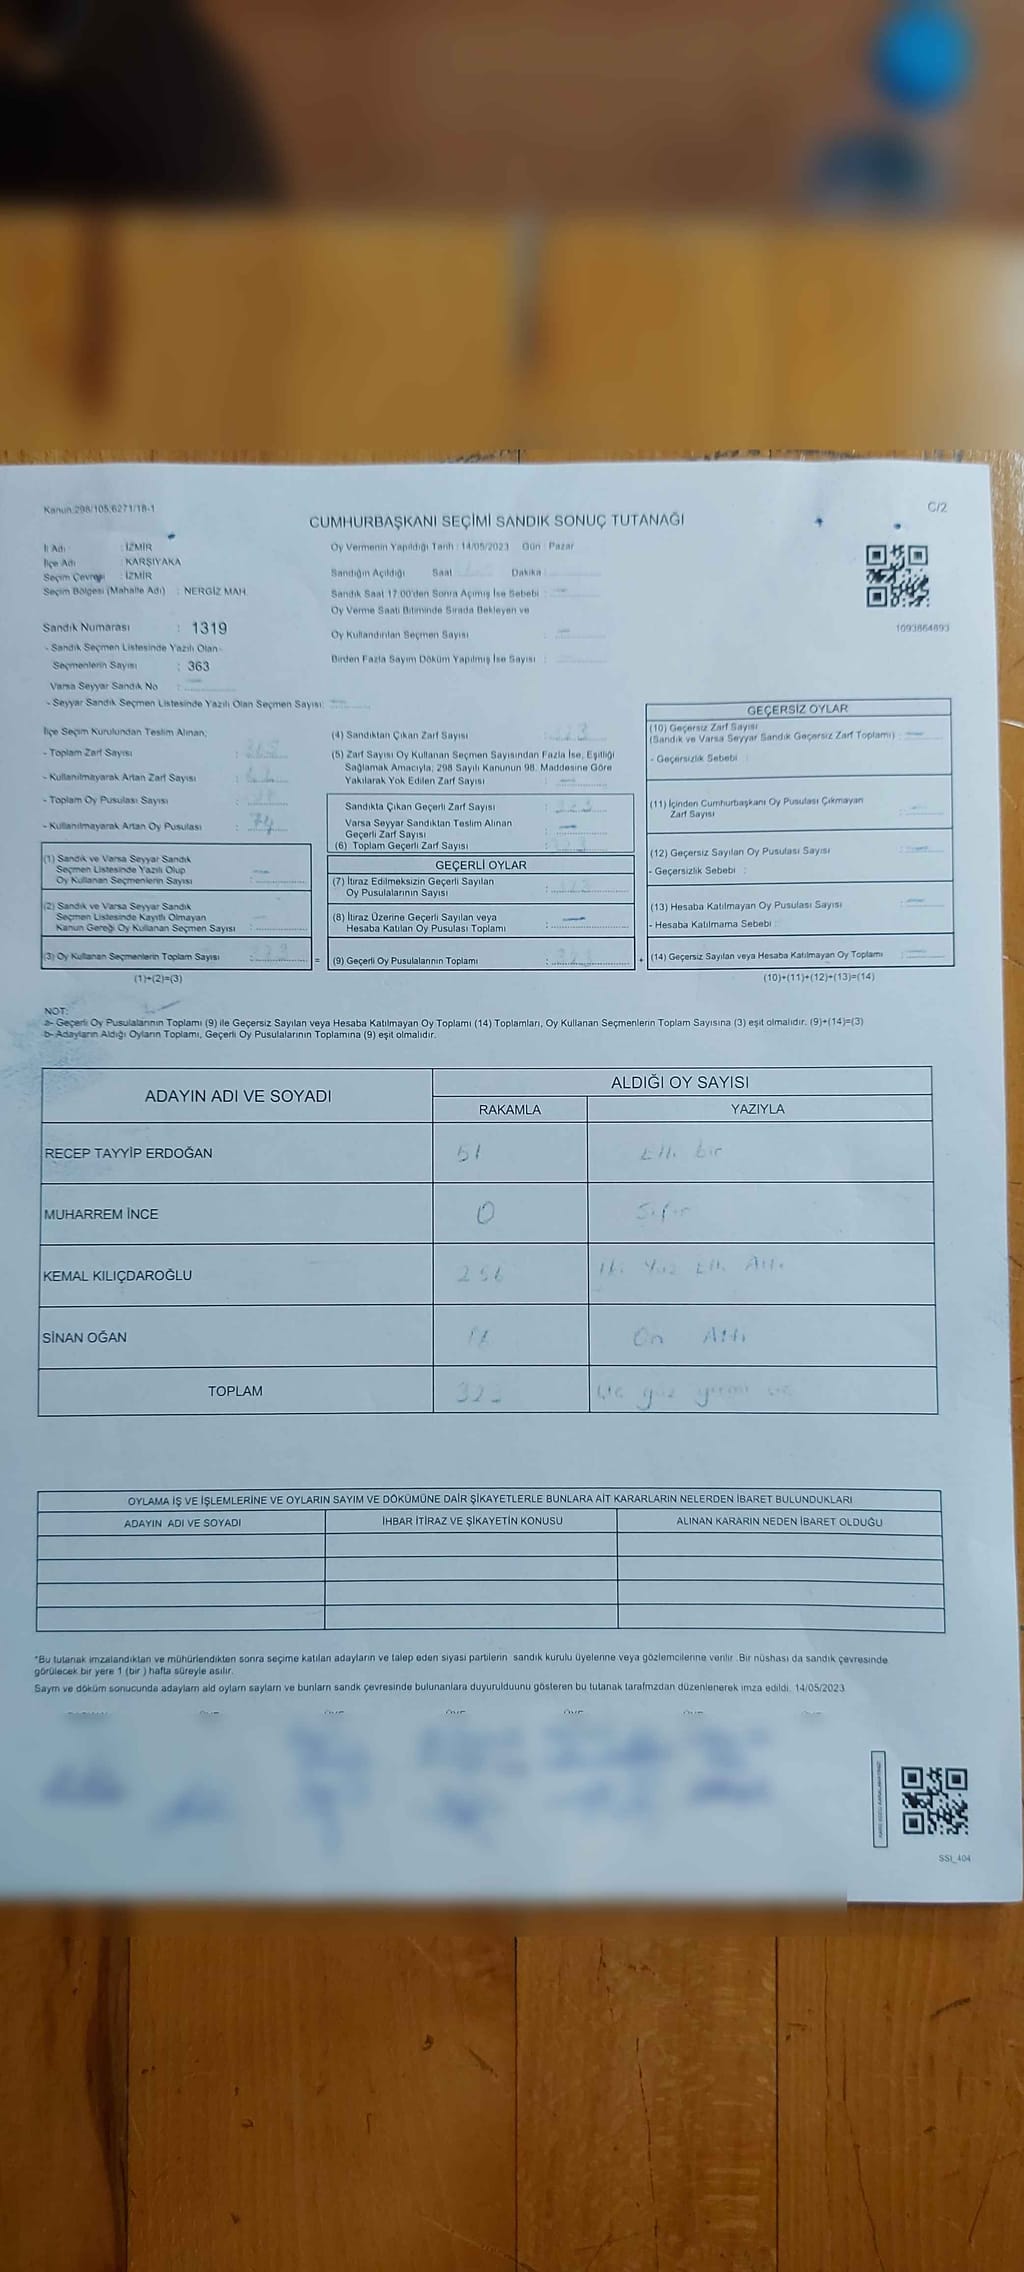 Kanun:298/105;6271/18-1
C/2
CUMHURBAŞKANI SEÇİMİ SANDIK SONUÇ TUTANAĞI
İl Adı : İZMİR
İlçe Adı : KARŞIYAKA
Seçim Çevresi : İZMİR
Seçim Bölgesi (Mahalle Adı) : NERGİZ MAH.
Oy Vermenin Yapıldığı Tarih : 14/05/2023 Gün : Pazar
Sandığın Açıldığı Saat Dakika
Sandık Saat 17:00'den Sonra Açılmış İse Sebebi :
Oy Verme Saati Bitiminde Sırada Bekleyen ve
Oy Kullandırılan Seçmen Sayısı :
Birden Fazla Sayım Döküm Yapılmış İse Sayısı :
1093864893
Sandık Numarası : 1319
- Sandık Seçmen Listesinde Yazılı Olan
Seçmenlerin Sayısı : 363
Varsa Seyyar Sandık No :
- Seyyar Sandık Seçmen Listesinde Yazılı Olan Seçmen Sayısı:
İlçe Seçim Kurulundan Teslim Alınan;
- Toplam Zarf Sayısı :
- Kullanılmayarak Artan Zarf Sayısı :
- Toplam Oy Pusulası Sayısı :
- Kullanılmayarak Artan Oy Pusulası : 74
(1) Sandık ve Varsa Seyyar Sandık
Seçmen Listesinde Yazılı Olup
Oy Kullanan Seçmenlerin Sayısı :
(2) Sandık ve Varsa Seyyar Sandık
Seçmen Listesinde Kayıtlı Olmayan
Kanun Gereği Oy Kullanan Seçmen Sayısı :
(3) Oy Kullanan Seçmenlerin Toplam Sayısı :
(1)+(2)=(3)
(4) Sandıktan Çıkan Zarf Sayısı :
(5) Zarf Sayısı Oy Kullanan Seçmen Sayısından Fazla İse, Eşitliği
Sağlamak Amacıyla; 298 Sayılı Kanunun 98. Maddesine Göre
Yakılarak Yok Edilen Zarf Sayısı :
Sandıkta Çıkan Geçerli Zarf Sayısı : 323
Varsa Seyyar Sandıktan Teslim Alınan
Geçerli Zarf Sayısı :
(6) Toplam Geçerli Zarf Sayısı : 323
GEÇERLİ OYLAR
(7) İtiraz Edilmeksizin Geçerli Sayılan
Oy Pusulalarının Sayısı : 323
(8) İtiraz Üzerine Geçerli Sayılan veya
Hesaba Katılan Oy Pusulası Toplamı :
= (9) Geçerli Oy Pusulalarının Toplamı : 323 +
GEÇERSİZ OYLAR
(10) Geçersiz Zarf Sayısı
(Sandık ve Varsa Seyyar Sandık Geçersiz Zarf Toplamı) :
- Geçersizlik Sebebi :
(11) İçinden Cumhurbaşkanı Oy Pusulası Çıkmayan
Zarf Sayısı :
(12) Geçersiz Sayılan Oy Pusulası Sayısı :
- Geçersizlik Sebebi :
(13) Hesaba Katılmayan Oy Pusulası Sayısı :
- Hesaba Katılmama Sebebi :
(14) Geçersiz Sayılan veya Hesaba Katılmayan Oy Toplamı :
(10)+(11)+(12)+(13)=(14)
NOT:
a- Geçerli Oy Pusulalarının Toplamı (9) ile Geçersiz Sayılan veya Hesaba Katılmayan Oy Toplamı (14) Toplamları, Oy Kullanan Seçmenlerin Toplam Sayısına (3) eşit olmalıdır. (9)+(14)=(3)
b- Adayların Aldığı Oyların Toplamı, Geçerli Oy Pusulalarının Toplamına (9) eşit olmalıdır.
ADAYIN ADI VE SOYADI
ALDIĞI OY SAYISI
RAKAMLA YAZIYLA
RECEP TAYYİP ERDOĞAN 51 Elli bir
MUHARREM İNCE 0 Sıfır
KEMAL KILIÇDAROĞLU 256 İki Yüz Elli Altı
SİNAN OĞAN 16 On Altı
TOPLAM 323 Üç yüz yirmi üç
OYLAMA İŞ VE İŞLEMLERİNE VE OYLARIN SAYIM VE DÖKÜMÜNE DAİR ŞİKAYETLERLE BUNLARA AİT KARARLARIN NELERDEN İBARET BULUNDUKLARI
ADAYIN ADI VE SOYADI İHBAR İTİRAZ VE ŞİKAYETİN KONUSU ALINAN KARARIN NEDEN İBARET OLDUĞU
*Bu tutanak imzalandıktan ve mühürlendikten sonra seçime katılan adayların ve talep eden siyasi partilerin sandık kurulu üyelerine veya gözlemcilerine verilir .Bir nüshası da sandık çevresinde
görülecek bir yere 1 (bir ) hafta süreyle asılır.
Saym ve döküm sonucunda adaylarn ald oylarn saylarn ve bunlarn sandk çevresinde bulunanlara duyurulduunu gösteren bu tutanak tarafmzdan düzenlenerek imza edildi. 14/05/2023
SSI_404